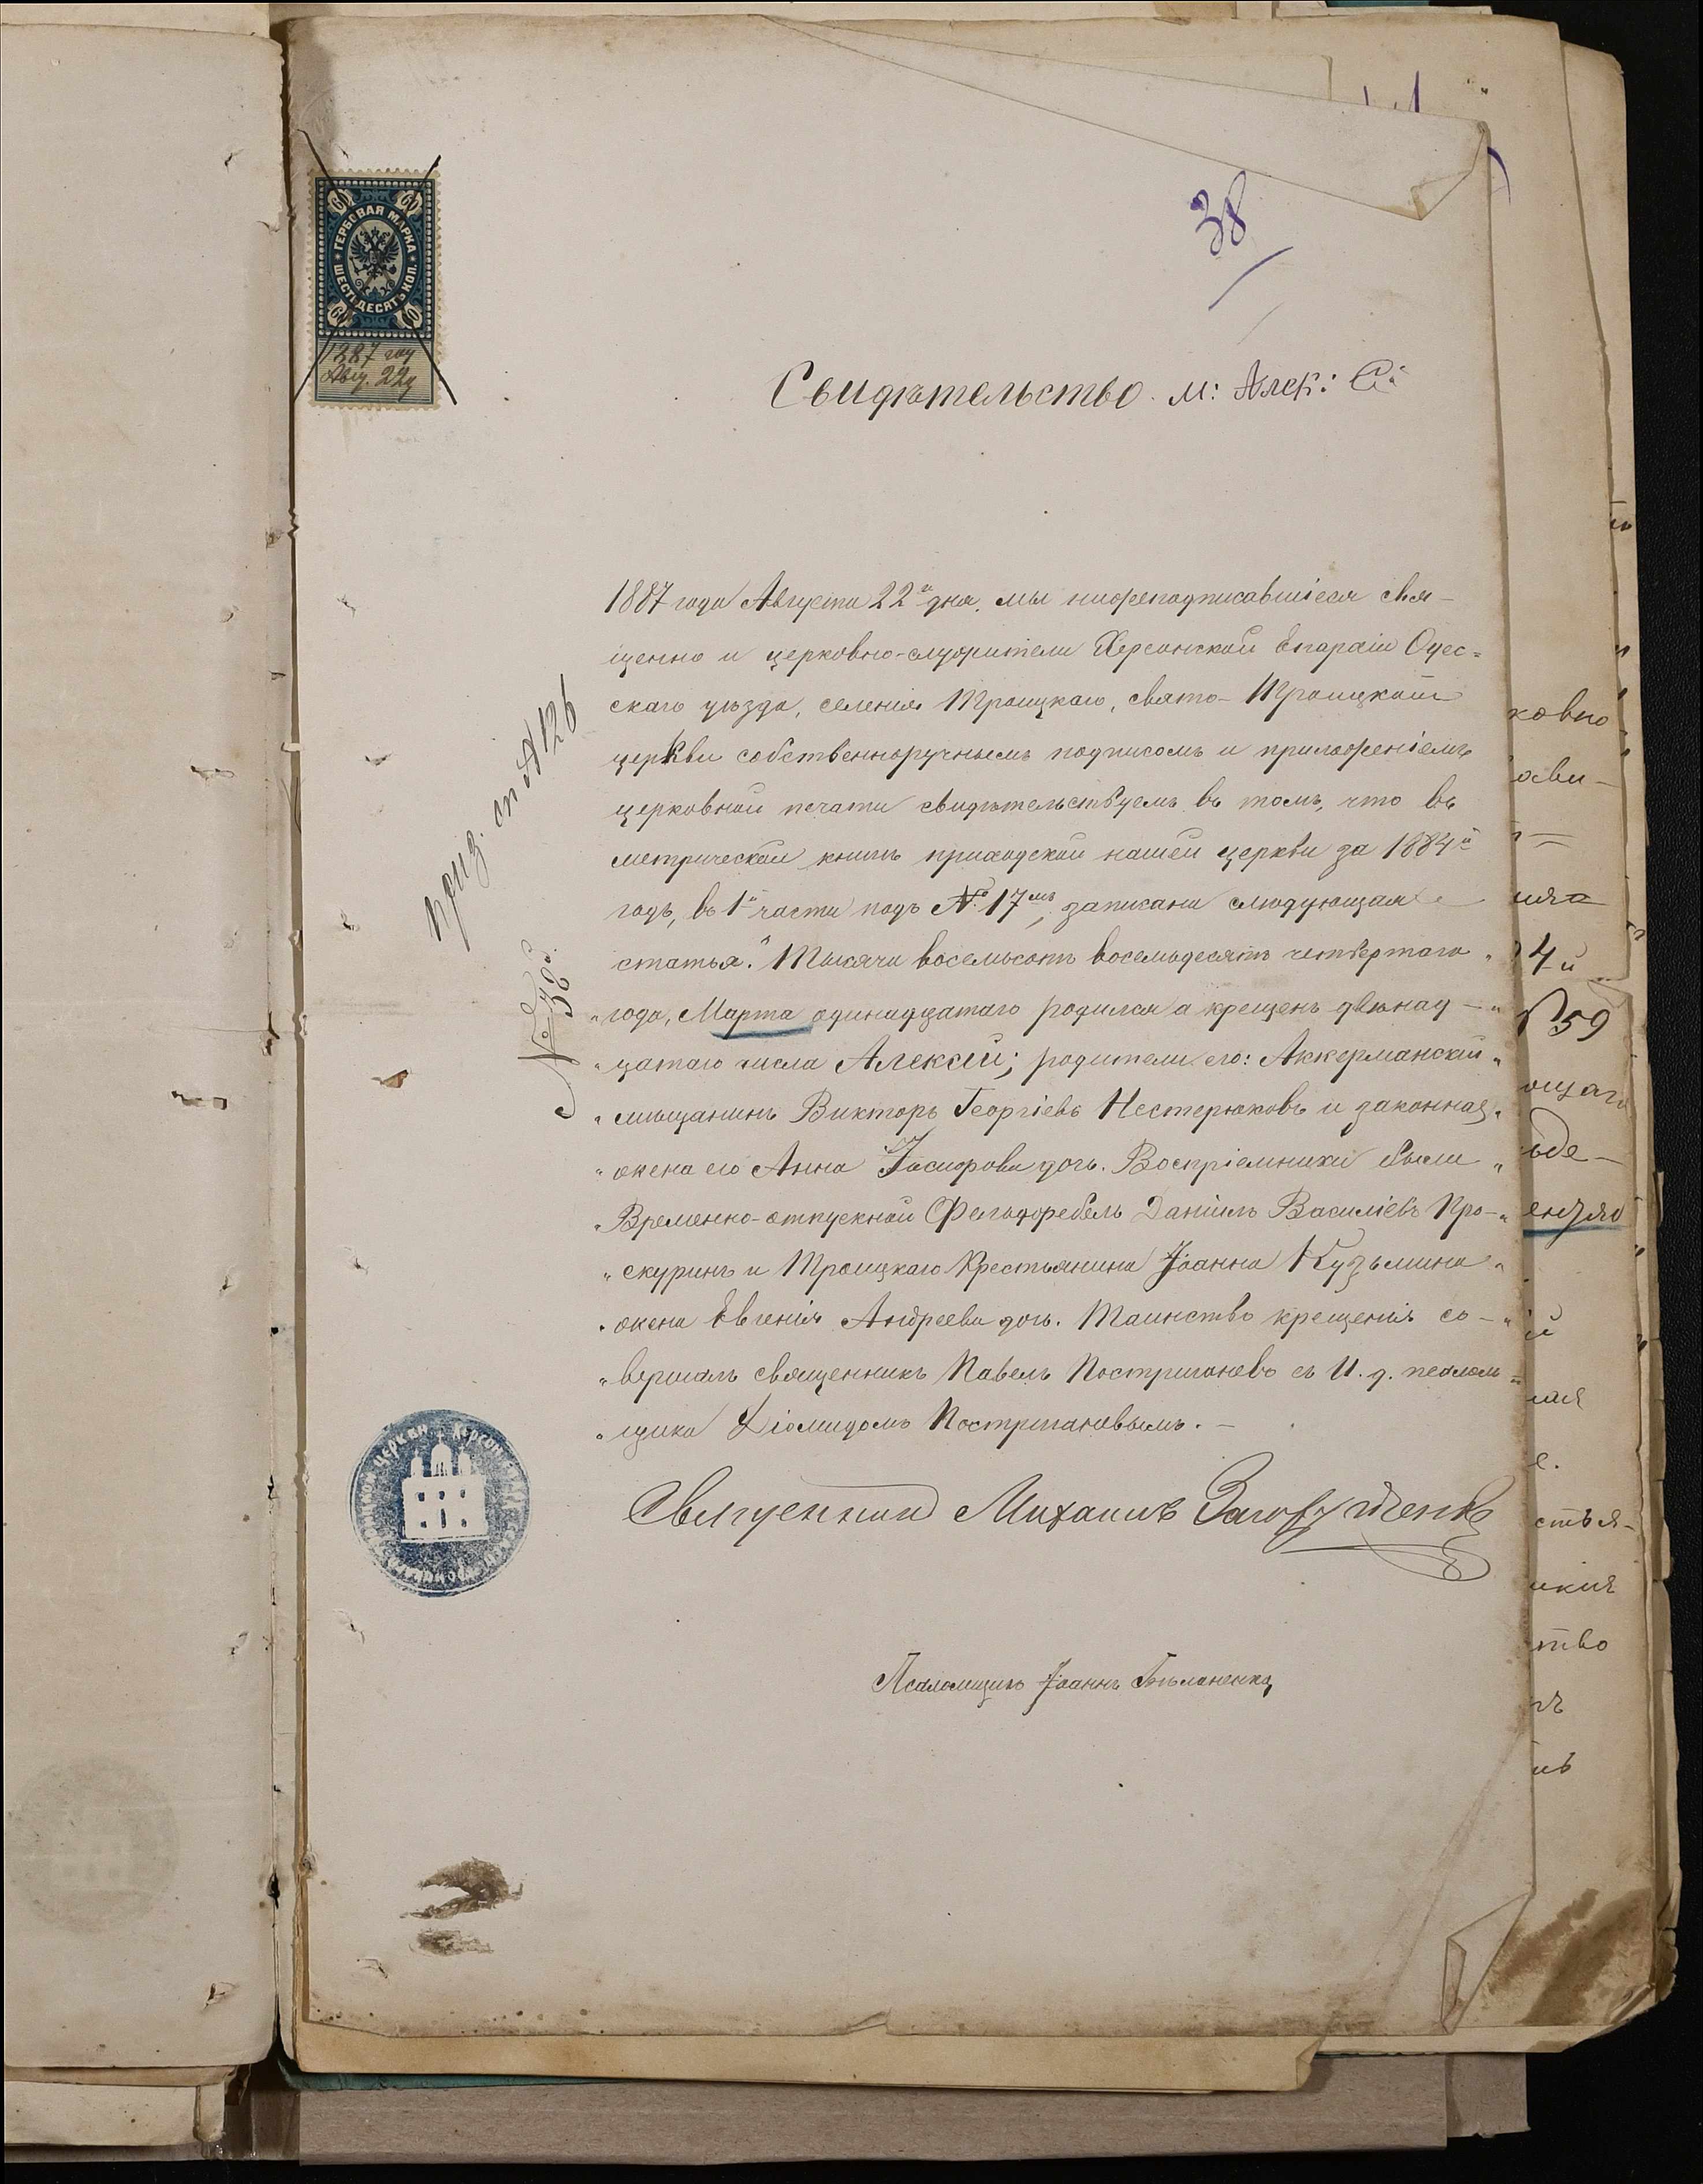 38
60 60
ГЕРБОВАЯ МАРКА
ШЕСТЬДЕСЯТЪ КОП.
60 60
1887 год
Авг. 22 д
Свидѣтельство. М: Алек:
1887 года Августа 22го дня. мы нижеподписавшіеся свя-
щенно и церковно-служители Херсонской Епархіи Одес-
скаго уѣзда, селенія Троицкаго, свято-Троицкой
церкви собственноручнымъ подписомъ и приложеніемъ
церковной печати свидѣтельствуемъ въ томъ, что въ
метрической книгѣ приходской нашей церкви за 1884й
годъ, въ 1й части подъ № 17мъ, записана слѣдующая
статья: „Тысяча восемьсотъ восемьдесятъ четвертаго „
„года, Марта одинадцатаго родился а крещенъ двѣнад-„
„цатаго числа Алексѣй; родители его: Аккерманскій „
„мѣщанинъ Викторъ Георгіевъ Нестерюковъ и законная „
„жена его Анна Іосифова дочь. Воспріемники были „
„Временно-отпускной Фельдфебель Даніилъ Василіевъ Про-„
„скуринъ и Троицкаго Крестьянина Іоанна Кузьмина „
„жена Евгенія Андреева дочь. Таинство крещенія со-„
„вершалъ священникъ Павелъ Постригачевъ съ И. д. псалом-„
„щика Діомидомъ Постригачевымъ. -
Священник Михаилъ
Псаломщикъ Іоаннъ
№ 38
№ 126
ковно
4й
59
ощаго
тво